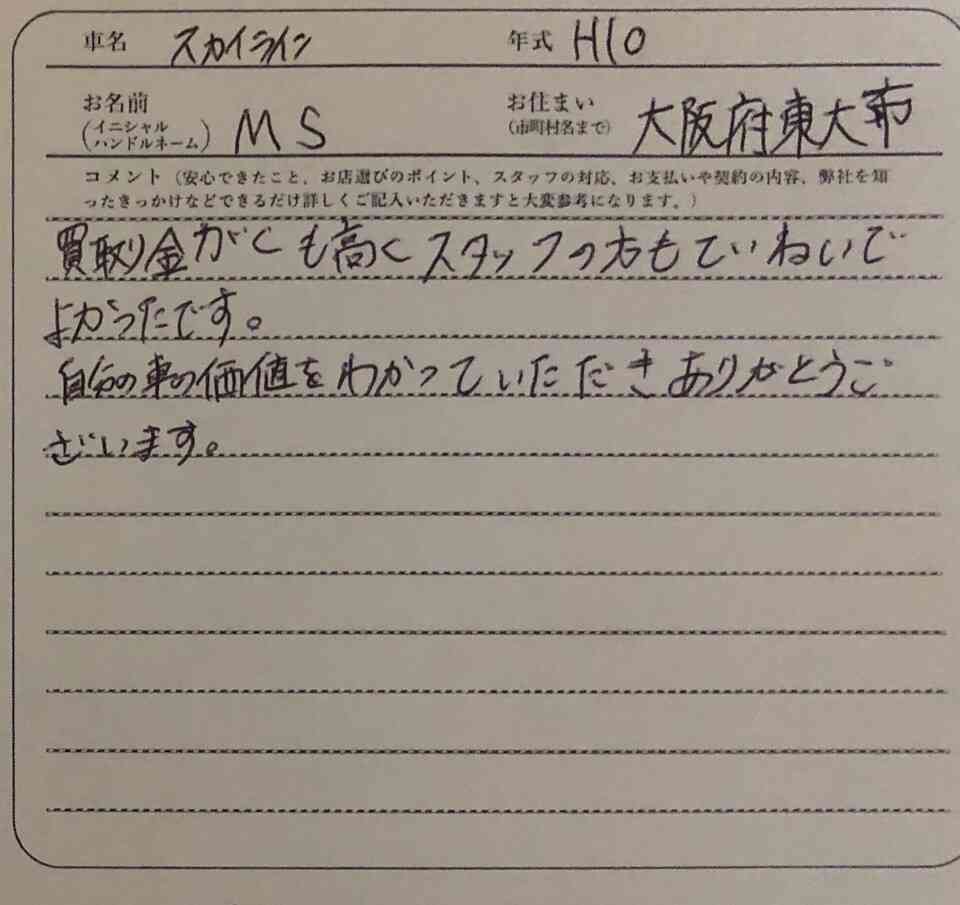 車名 スカイライン 年式 H10
お名前 (イニシャル ハンドルネーム) MS お住まい (市町村名まで) 大阪府東大市
コメント（安心できたこと、お店選びのポイント、スタッフの対応、お支払いや契約の内容、弊社を知
ったきっかけなどできるだけ詳しくご記入いただきますと大変参考になります。）
買取り金がくも高くスタッフの方もていねいで
よかったです。
自分の車の価値をわかっていただきありがとうご
ざいます。